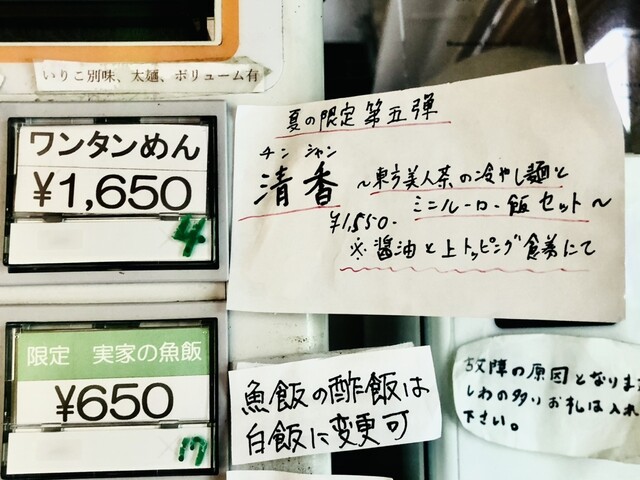 いりこ別味、太麺、ボリューム有
ワンタンめん
¥1,650
4
限定 実家の魚飯
¥650
夏の限定第五弾
チン シャン
清香 ~東方美人茶の冷やし麺と
ミニルーロー飯セット~
¥1,550-
※醤油と上トッピング食券にて
魚飯の酢飯は
白飯に変更可
故障の原因となります
しわの多いお札は入れ
下さい。